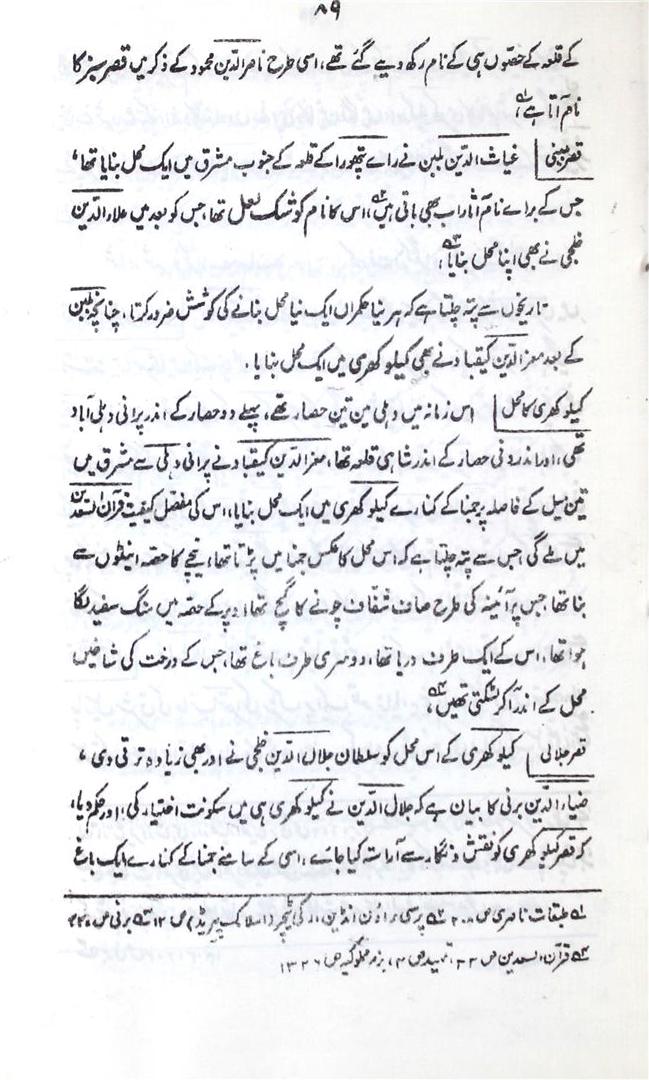 ۸۹
کے قلعہ کے حصّوں ہی کے نام رکھ دیے گئے تھے، اسی طرح ناصر الدین محمود کے ذکر میں قصر سبز کا
نام آتا ہے،
قصر بلبنی غیاث الدین بلبن نے راے پتھورا کے قلعہ کے جنوب مشرق میں ایک محل بنایا تھا،
جس کے براے نام آثار اب بھی باقی ہیں، اس کا نام کوشک لعل تھا، جس کو بعد میں علاء الدین
خلجی نے بھی اپنا محل بنایا،
تاریخوں سے پتہ چلتا ہے کہ ہر نیا حکمراں ایک نیا محل بنانے کی کوشش ضرور کرتا، چنانچہ بلبن
کے بعد معز الدین کیقباد نے بھی کیلوکھری میں ایک محل بنایا،
کیلوکھری کا محل اس زمانہ میں دہلی میں تین حصار تھے، پہلے دو حصار کے اندر پرانی دہلی آباد
تھی، اور اندرونی حصار کے اندر شاہی قلعہ تھا، معز الدین کیقباد نے پرانی دہلی سے مشرق میں
تین میل کے فاصلہ پر جمنا کے کنارے کیلوکھری میں ایک محل بنایا، اس کی مفصل کیفیت قران السعدین
میں ملے گی جس سے پتہ چلتا ہے کہ اس محل کا عکس جمنا میں پڑتا تھا، نیچے کا حصہ اینٹوں سے
بنا تھا جس پر آئینہ کی طرح صاف شفاف چونے کا گچ تھا، اوپر کے حصہ میں سنگ سفید لگا
ہوا تھا، اس کے ایک طرف دریا تھا، دوسری طرف باغ تھا، جس کے درخت کی شاخیں
محل کے اندر آکر لٹکتی تھیں،
قصر جلالی کیلوکھری کے اس محل کو سلطان جلال الدین خلجی نے اور بھی زیادہ ترقی دی،
ضیاء الدین برنی کا بیان ہے کہ جلال الدین نے کیلوکھری ہی میں سکونت اختیار کی، اور حکم دیا،
کہ قصر کیلوکھری کو نقش و نگار سے آراستہ کیا جائے، اسی کے سامنے جمنا کے کنارے ایک باغ
طبقات ناصری ص پرسی براؤن انڈین آرکیٹیکچر (اسلامک پیریڈ) ص ۱۲ برنی ص
قران السعدین ص تمہید ص بزم مملوکیہ ص